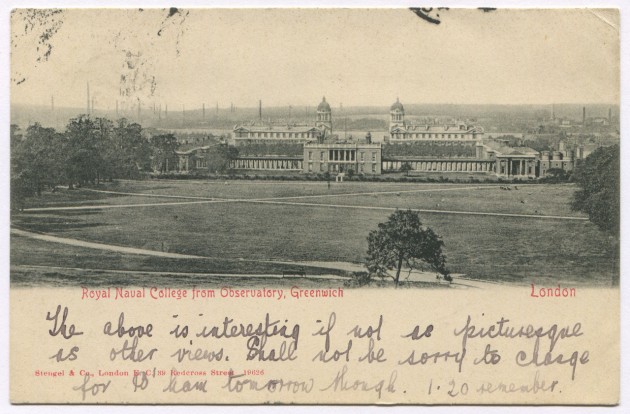 Royal Naval College from Observatory, Greenwich
London
The above is interesting if not as picturesque
as other views. Shall not be sorry to change
Stengel & Co., London E. C. 39 Redcross Street 19626
for B'ham tomorrow though. 1.20 remember.